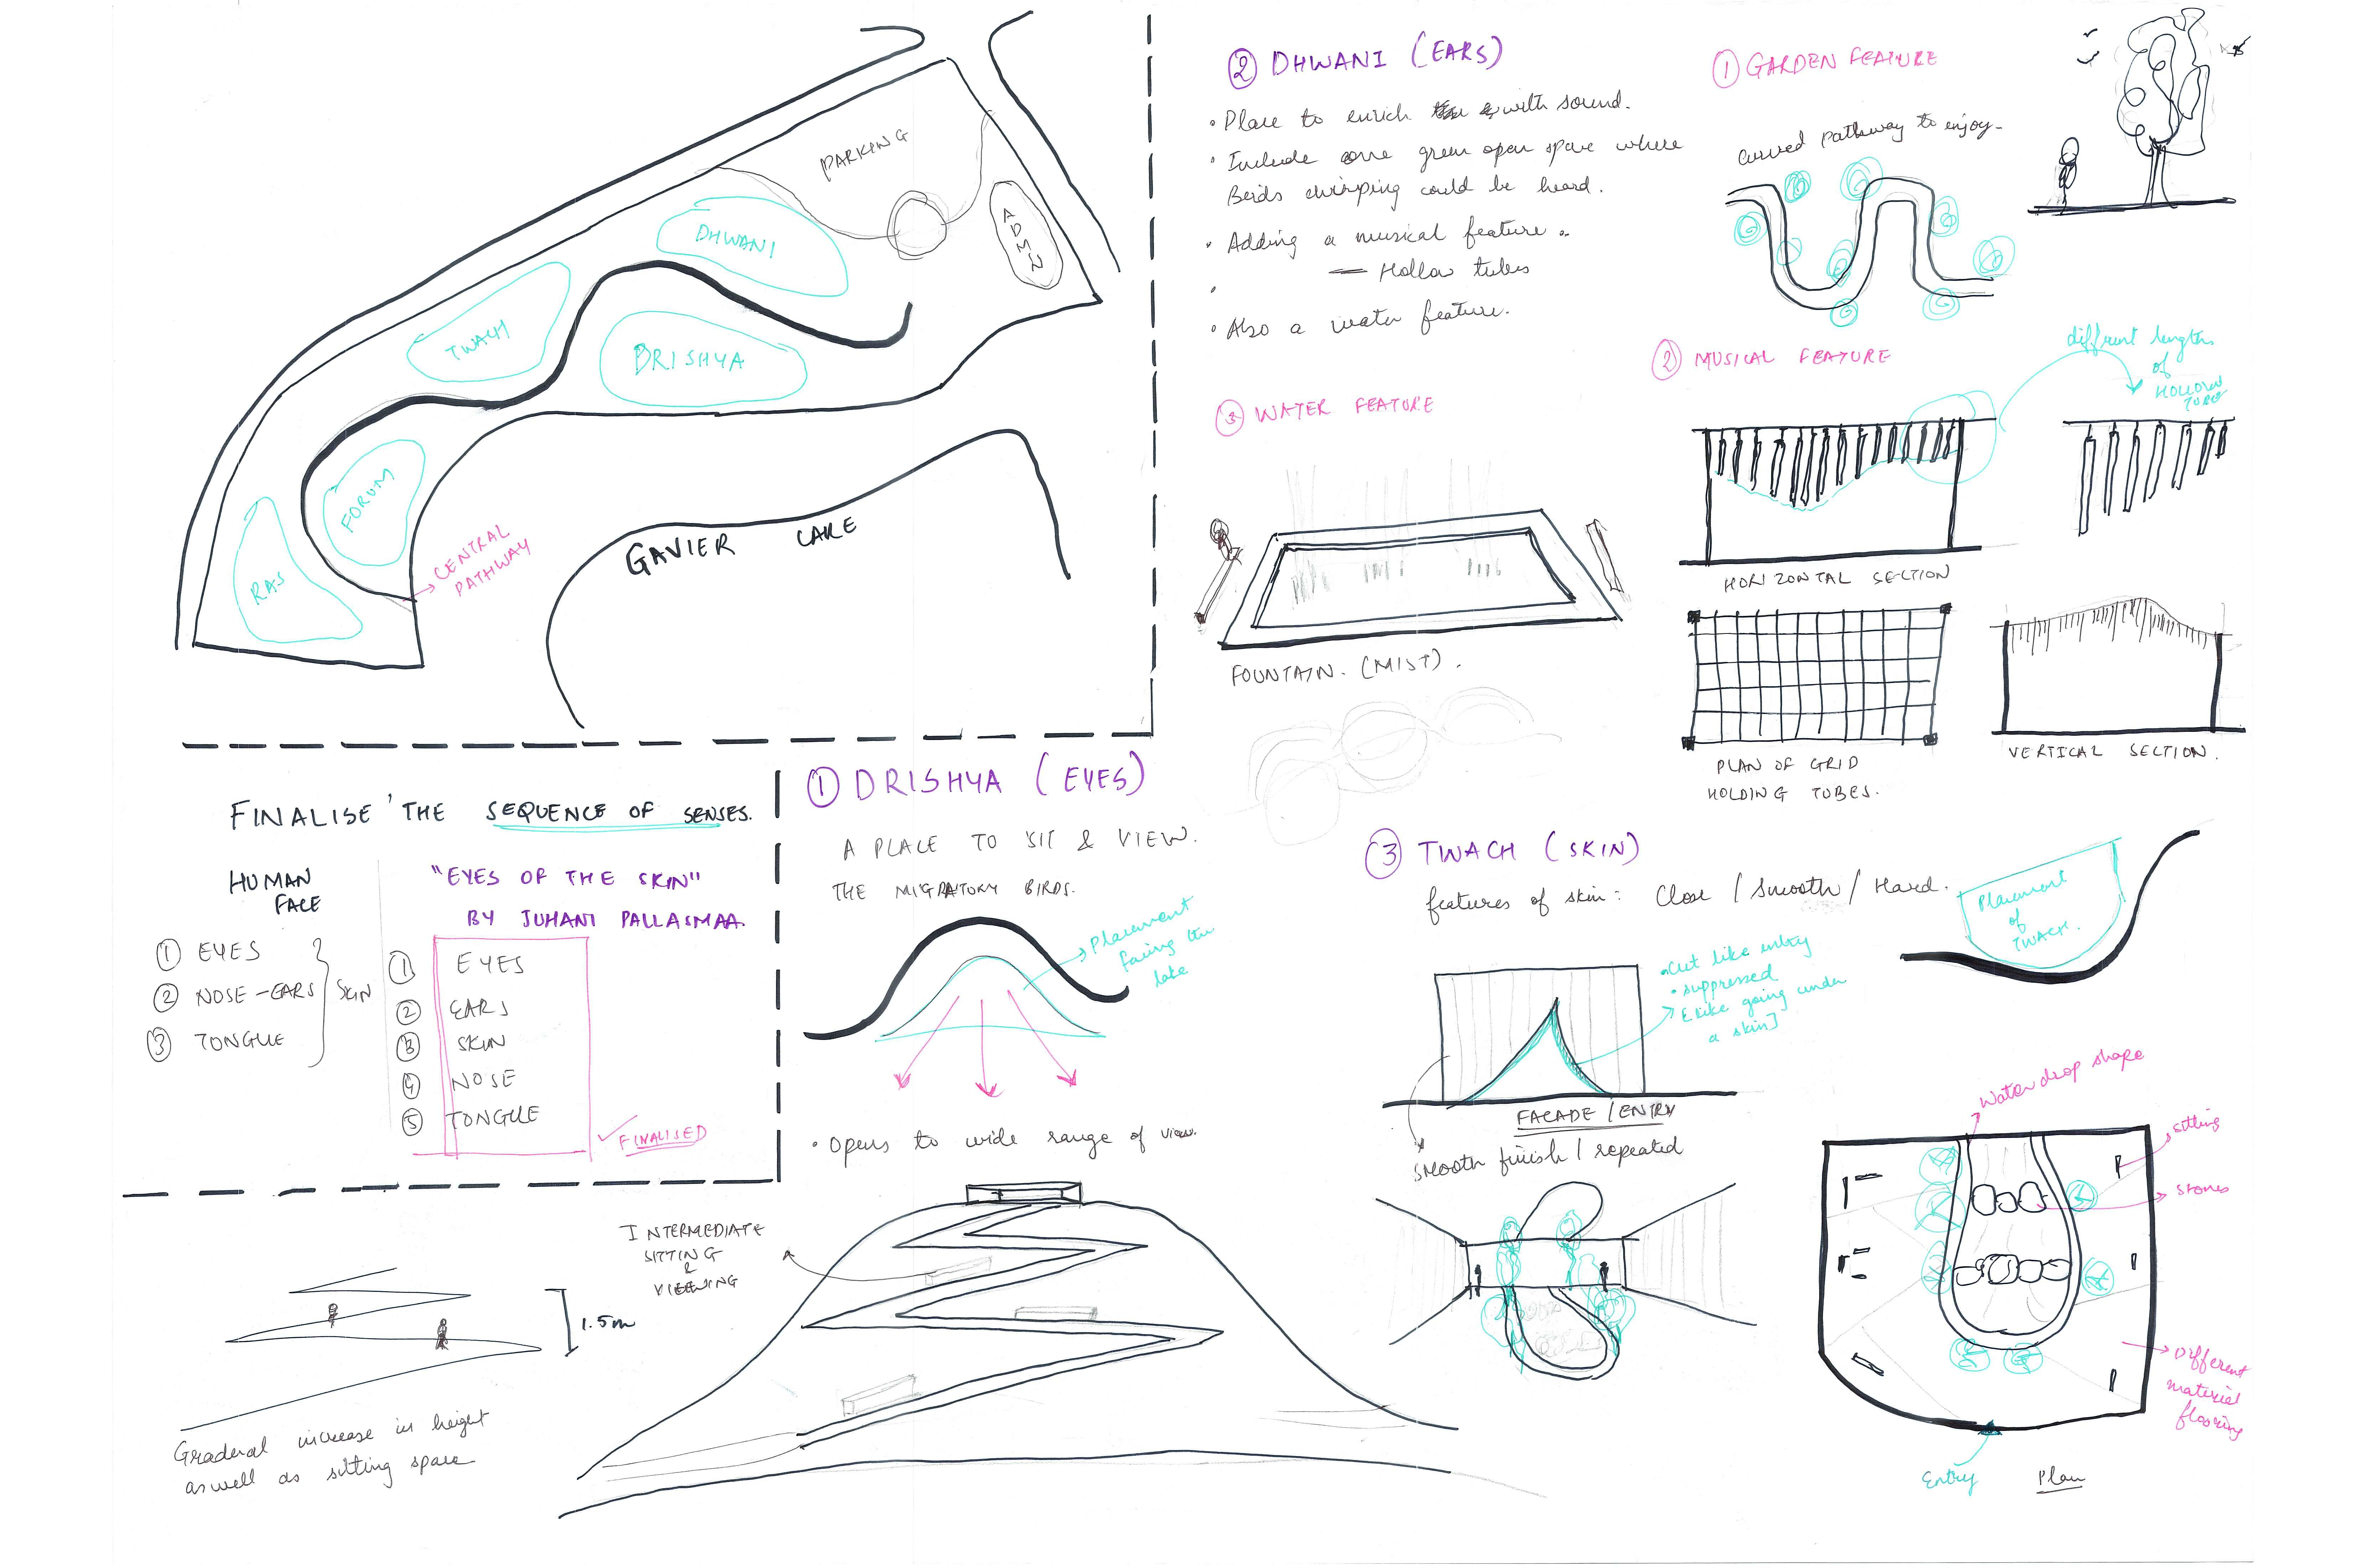 PARKING
ADMN
DHWANI
TWACH
DRISHYA
FORUM
RAS
CENTRAL
PATHWAY
GAVIER LAKE
FINALISE THE SEQUENCE OF SENSES.
HUMAN
FACE
① EYES
② NOSE - EARS
③ TONGUE
SKIN
"EYES OF THE SKIN"
BY JUHANI PALLASMAA.
① EYES
② EARS
③ SKIN
④ NOSE
⑤ TONGUE
FINALISED
① DRISHYA (EYES)
A PLACE TO SIT & VIEW.
THE MIGRATORY BIRDS.
Placement
facing the
lake
• Opens to wide range of view.
INTERMEDIATE
SITTING
&
VIEWING
1.5m
Graderal increase in height
aswell as sitting space
② DHWANI (EARS)
• Place to enrich with sound.
• Include some green open space where
Beids chirping could be heard.
• Adding a musical feature ..
— Hollow tubes
•
• Also a water feature.
① GARDEN FEATURE
curved pathway to enjoy-
② MUSICAL FEATURE
different lengths
of
HOLLOW
TUBE
HORIZONTAL SECTION
PLAN OF GRID
HOLDING TUBES.
VERTICAL SECTION.
③ WATER FEATURE
FOUNTAIN. (MIST).
③ TWACH (SKIN)
features of skin: Close / Smooth / Hard.
Placement
of
TWACH.
• Cut like entry
• suppressed
[like going under
a skin]
FACADE / ENTRY
smooth finish / repeated
Water drop shape
sitting
stones
Different
material
flooring
Entry
Plan